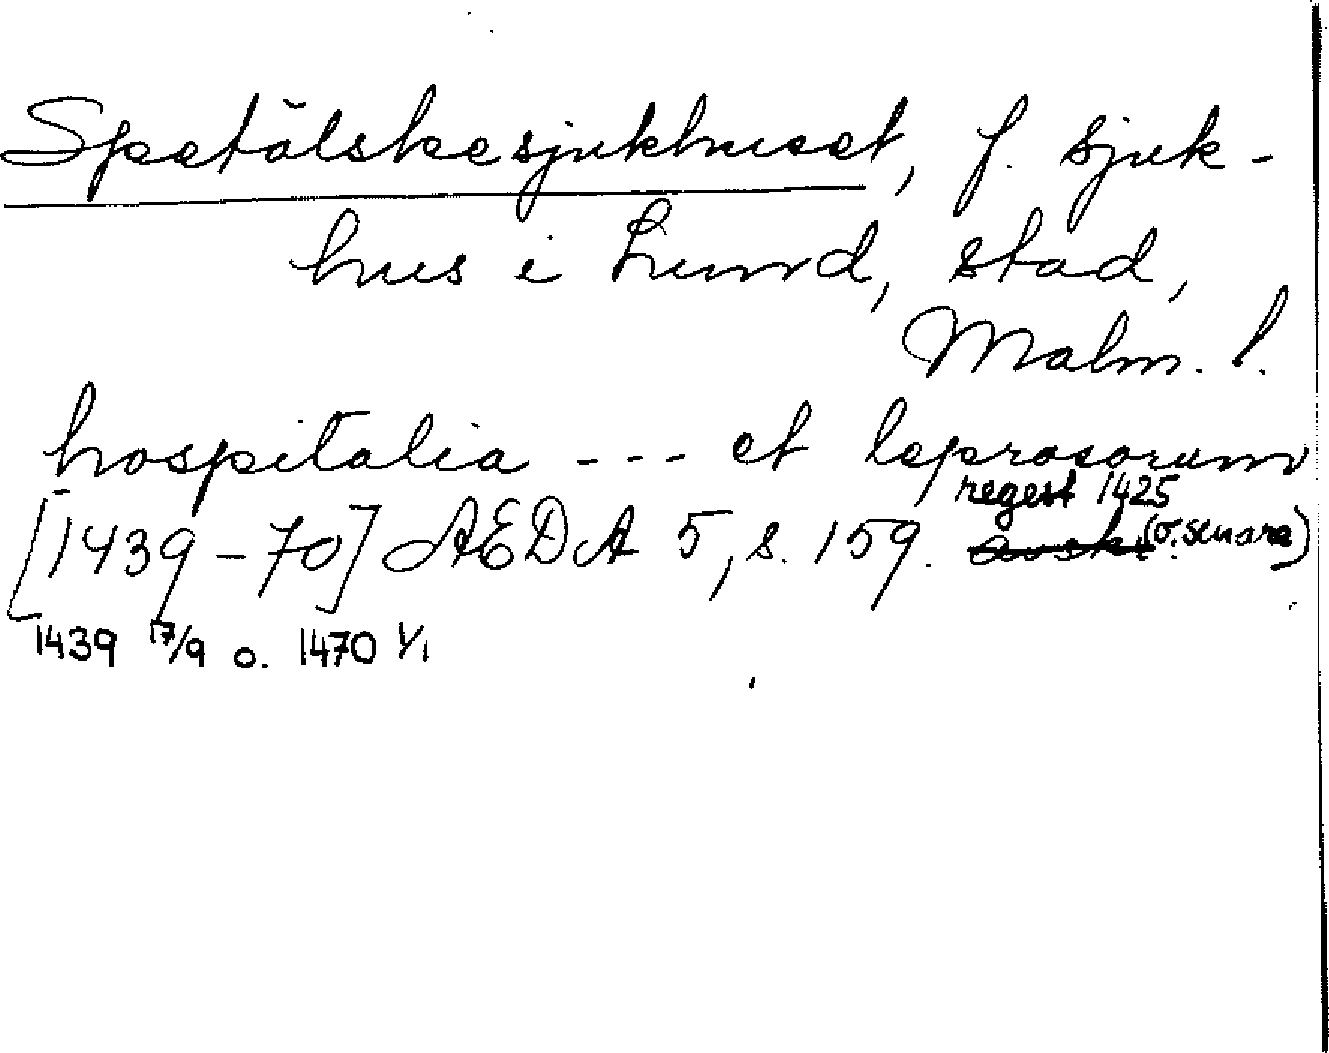 Spetälskesjukhuset, f. sjuk-
hus i Lund, stad,
Malm. l.
hospitalia --- et leprosorum
regest 1425
[1439-70] AEDA 5, s. 159. (o. senare)
1439 17/9 o. 1470 1/1